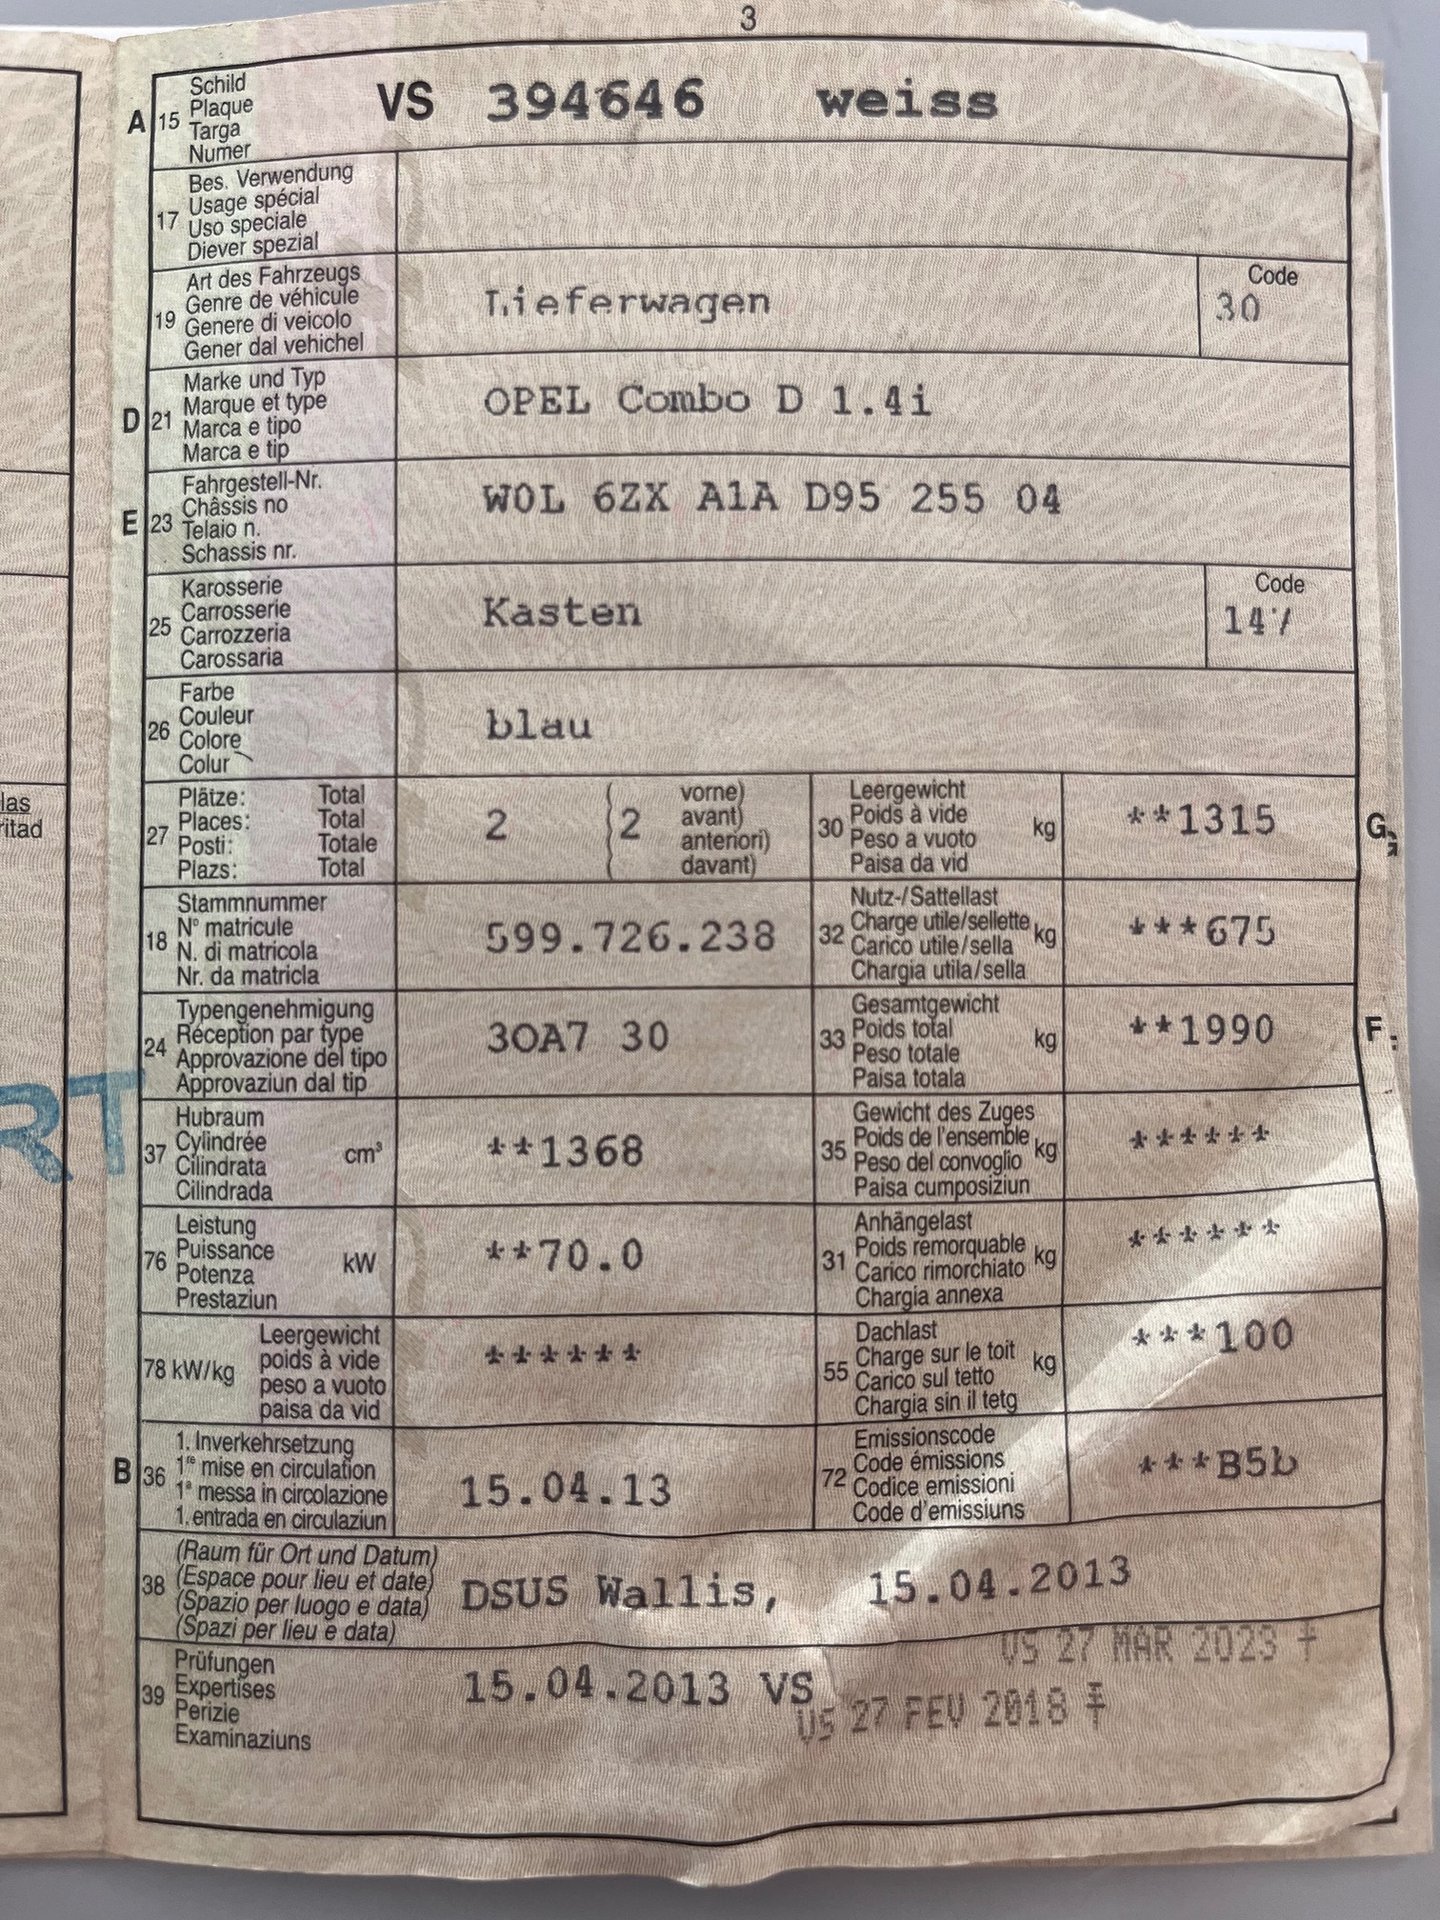 3
A 15 Schild
Plaque
Targa
Numer
VS 394646 weiss
17 Bes. Verwendung
Usage spécial
Uso speciale
Diever spezial
19 Art des Fahrzeugs
Genre de véhicule
Genere di veicolo
Gener dal vehichel
Lieferwagen
Code
30
D 21 Marke und Typ
Marque et type
Marca e tipo
Marca e tip
OPEL Combo D 1.4i
E 23 Fahrgestell-Nr.
Châssis no
Telaio n.
Schassis nr.
W0L 6ZX A1A D95 255 04
25 Karosserie
Carrosserie
Carrozzeria
Carossaria
Kasten
Code
147
26 Farbe
Couleur
Colore
Colur
blau
27 Plätze: Total
Places: Total
Posti: Totale
Plazs: Total
2 ( 2 vorne)
avant)
anteriori)
davant)
30 Leergewicht
Poids à vide
Peso a vuoto
Paisa da vid
kg
**1315
G
18 Stammnummer
N° matricule
N. di matricola
Nr. da matricla
599.726.238
32 Nutz-/Sattellast
Charge utile/sellette
Carico utile/sella
Chargia utila/sella
kg
***675
24 Typengenehmigung
Réception par type
Approvazione del tipo
Approvaziun dal tip
3OA7 30
33 Gesamtgewicht
Poids total
Peso totale
Paisa totala
kg
**1990
F
37 Hubraum
Cylindrée
Cilindrata
Cilindrada
cm³
**1368
35 Gewicht des Zuges
Poids de l'ensemble
Peso del convoglio
Paisa cumposiziun
kg
******
76 Leistung
Puissance
Potenza
Prestaziun
kW
**70.0
31 Anhängelast
Poids remorquable
Carico rimorchiato
Chargia annexa
kg
******
78 kW/kg Leergewicht
poids à vide
peso a vuoto
paisa da vid
******
55 Dachlast
Charge sur le toit
Carico sul tetto
Chargia sin il tetg
kg
***100
B 36 1. Inverkehrsetzung
1re mise en circulation
1a messa in circolazione
1. entrada en circulaziun
15.04.13
72 Emissionscode
Code émissions
Codice emissioni
Code d'emissiuns
***B5b
38 (Raum für Ort und Datum)
(Espace pour lieu et date)
(Spazio per luogo e data)
(Spazi per lieu e data)
DSUS Wallis, 15.04.2013
39 Prüfungen
Expertises
Perizie
Examinaziuns
VS 27 MAR 2023
15.04.2013 VS
VS 27 FEV 2018